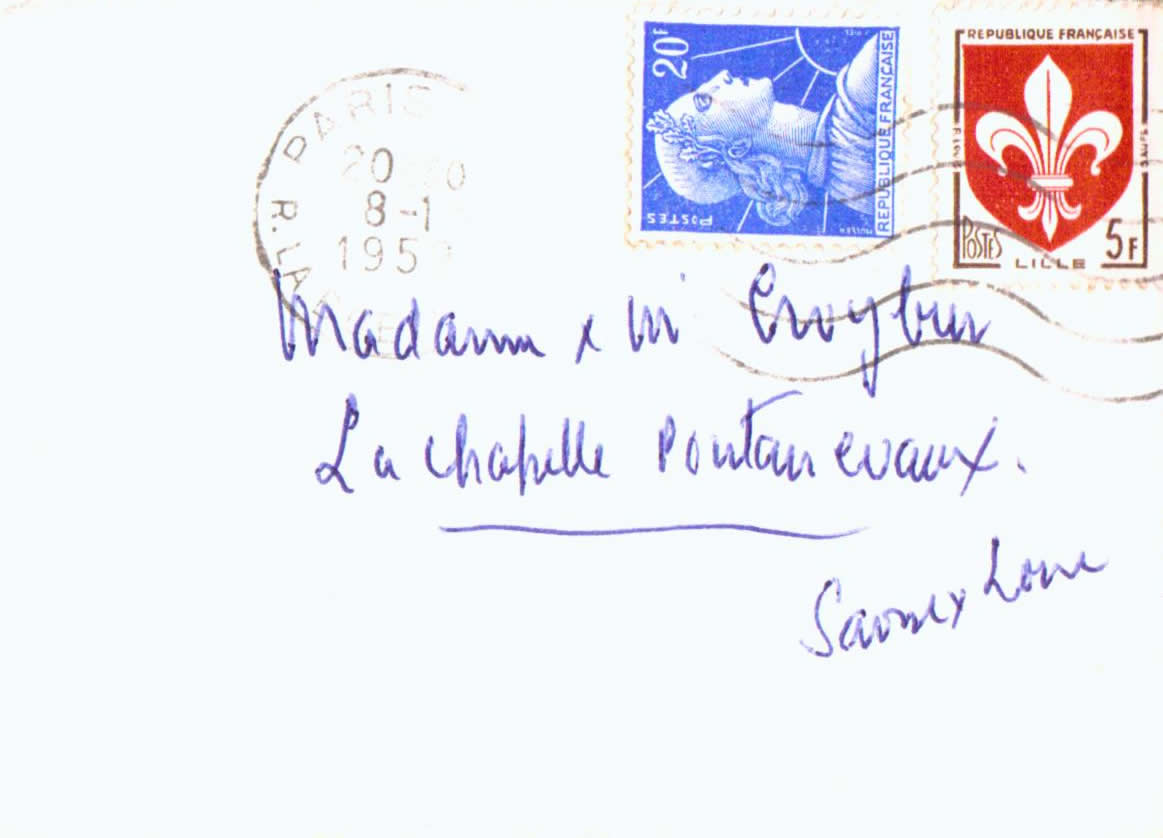 PARIS
20
8-1
195
R.LA
20F
POSTES
MULLER
REPUBLIQUE FRANÇAISE
REPUBLIQUE FRANÇAISE
POSTES
5F
LILLE
Madame x Mr
La Chapelle Pontanevaux.
Saone x Loire